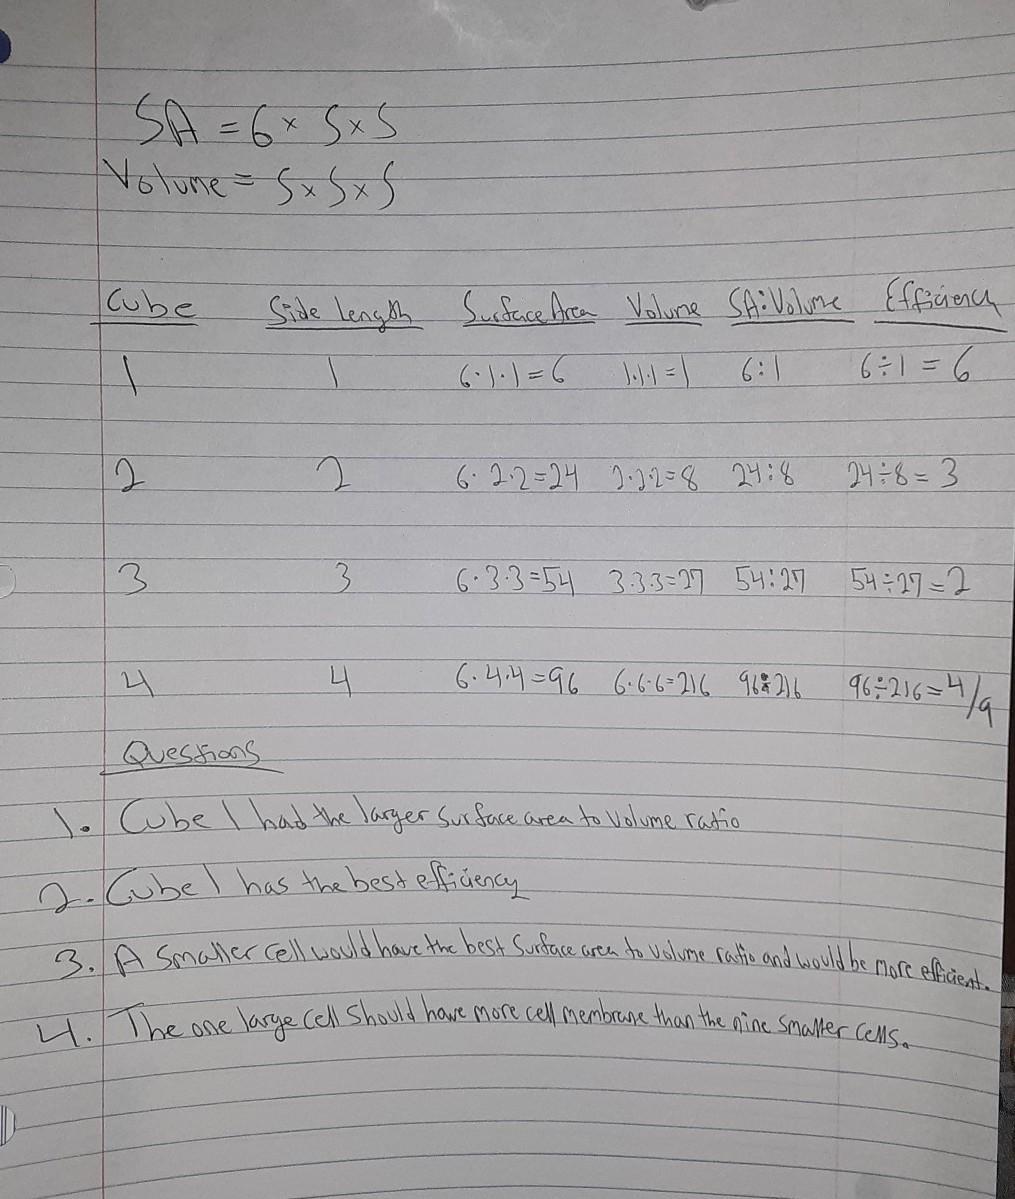 SA = 6 × S × S
Volume = S × S × S
Cube Side Length Surface Area Volume SA:Volume Efficiency
1 1 6·1·1=6 1·1·1=1 6:1 6÷1=6
2 2 6·2·2=24 2·2·2=8 24:8 24÷8=3
3 3 6·3·3=54 3·3·3=27 54:27 54÷27=2
4 4 6·4·4=96 6·6·6=216 96:216 96÷216=4/9
Questions
1. Cube 1 had the larger surface area to volume ratio
2. Cube 1 has the best efficiency
3. A smaller cell would have the best surface area to volume ratio and would be more efficient.
4. The one large cell should have more cell membrane than the nine smaller cells.